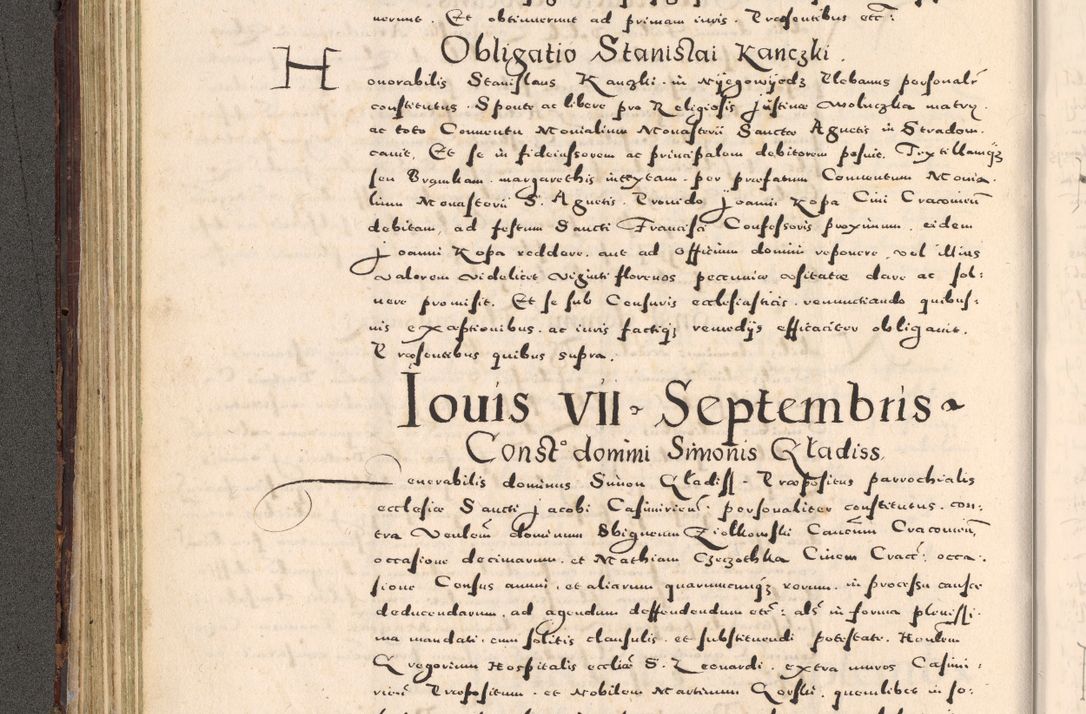 uerunt. Et obtinuerunt ad primam iuris. Præsentibus etc:
Obligatio Stanislai Kanczki.
Honorabilis Stanislaus Kanczki in Nyegowycz Plebanus personalr
constitutus. Sponte ac libere pro Religiosis Justina Woluczka matry.
ac toto Conuentu Monialium Monasterii Sanctæ Agnetis in Stradom.
cauit. Et se in fideiussorem ac principalem debitorem posuit.
seu margarethis intextam. per præfatum Conuentum Monia-
lium Monasterii S. Agnetis. Prouido Joanni Kopa Ciui Cracouien
debitam, ad festum Sancti Francisci Confessoris proximum. eidem
Joanni Kopa reddere. aut ad officium domini reponere. vel illius
valorem videlicet viginti florenos pecuniæ vsitatæ dare ac sol:
uere promisit. Et se sub Censuris ecclesiasticis. renunctiando quibus-
uis exceptionibus. ac iuris factiq3 remedijs efficaciter obligauit.
Præsentibus quibus supra.
Iouis VII Septembris
Const° domini Simonis Gładiss.
Venerabilis dominus Simon Gładiss. Præpositus parrochialis
ecclesiæ Sancti Jacobi Casimirien: personaliter constitutus. con:
tra Venlem dominum Sbigneum Ziołkowski Cancum Cracouien,
occasione decimarum. et Mathiam Czeczothka Ciuem Crac: occa:
sione Census annui. et aliarum quarumcunq3 rerum. in processu causæ
deducendarum. ad agendum deffendendum etc: als in forma plenissi.
ma mandati. cum solitis clausulis. et substituendi potestate. Honlem
Gregorium Hospitalis eccliæ S. Leonardi. extra muros Casimi:
rien Præpositum. et Nobilem Martinum Gorski, quemlibet in so: